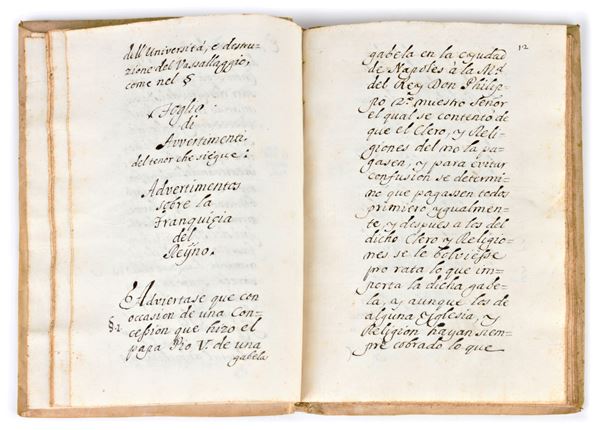 dell'Università, e destru=
zione del Vassallaggio,
come nel §
Foglio
di
Avvertimenti
del tenor che siegue:
Advertimentos
sobre la
Franquiçia
del
Reyno.
Adviertase que con
§1 occasion de una Con=
cession que hizo el
papa Pio V. de una
gabela
12
gabela en la ciudad
de Napoles à la Md.
del Rey Don Philip=
po 2º. nuestro Señor
el qual se contentò de
que el Clero, y Reli=
giones del no la pa=
gasen, y para evitar
confusion se determi=
nò que pagassen todos
primero ygualmen=
te, y despues a los del
dicho Clero y Religio=
nes se le bolviesse
pro rata lo que im=
porta la dicha gabe=
la, a, aunque los de
alguna Yglesia, y
Religion hayan siem=
pre cobrado lo que